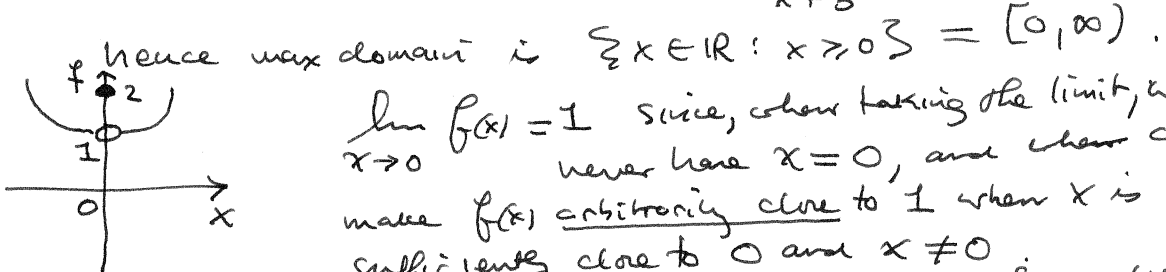 hence max domain is {x ∈ ℝ : x ⩾ 0} = [0, ∞).
f 2
1
0 x
lim f(x) = 1 since, when taking the limit,
x→0 never have x = 0, and when
make f(x) arbitrarily close to 1 when x is
sufficiently close to 0 and x ≠ 0